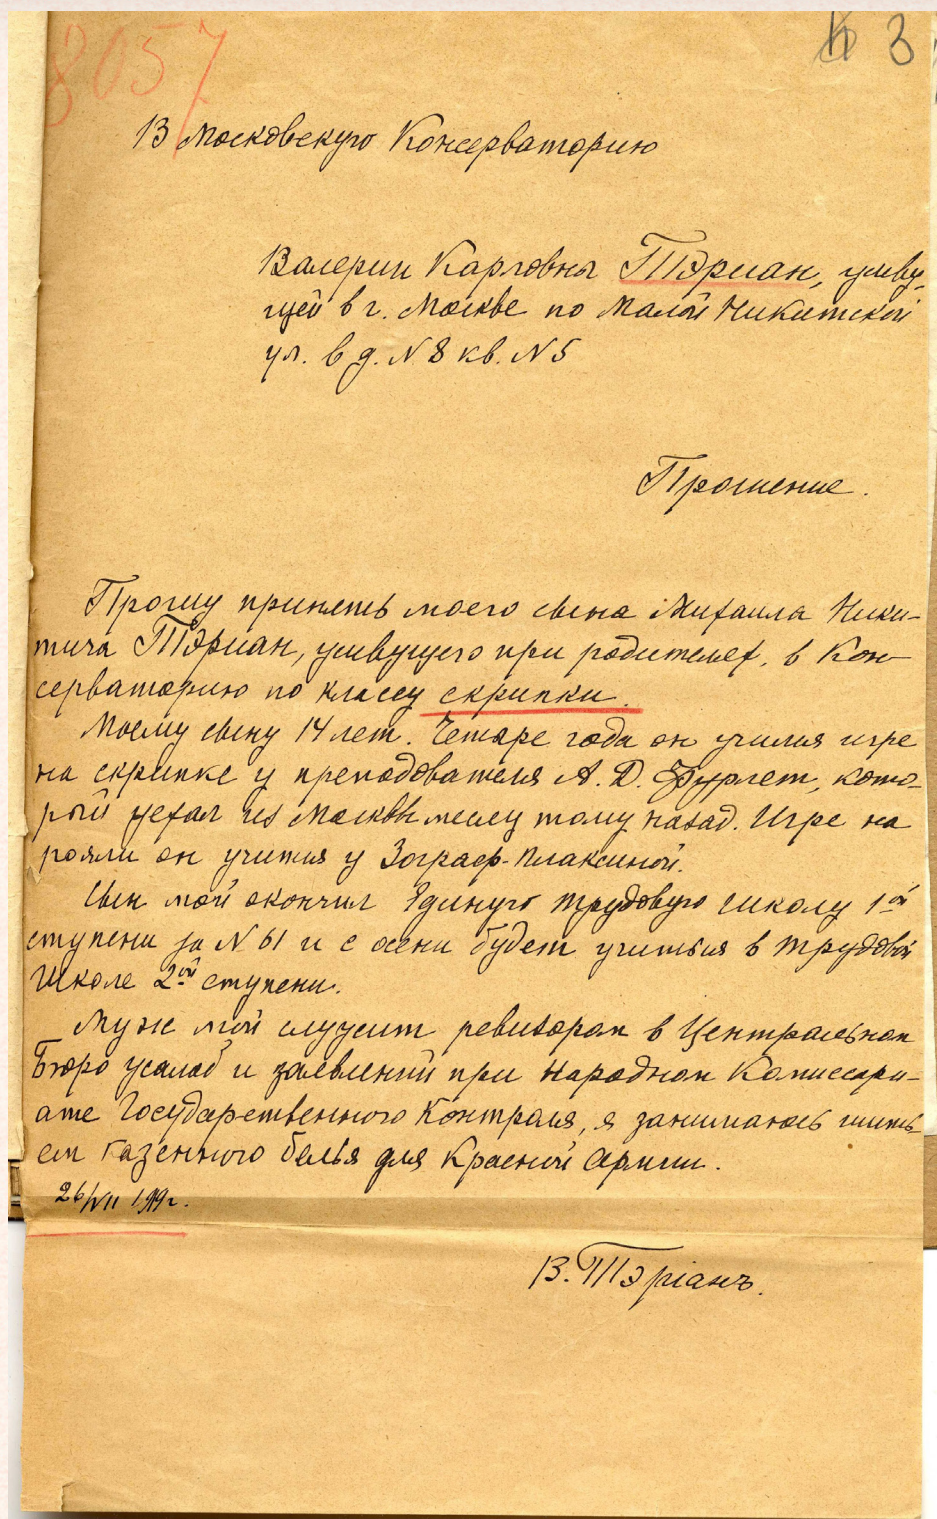 8057
3
В Московскую Консерваторию
Валерии Карловны Тэриан, живу-
щей в г. Москве по Малой Никитской
ул. в д. N 8 кв. N 5
Прошение.
Прошу принять моего сына Михаила Ники-
тича Тэриан, живущего при родителях, в Кон-
серваторию по классу скрипки.
Моему сыну 14 лет. Четыре года он учился игре
на скрипке у преподователя А. Д. Фурлет, кото-
рый уехал из Москвы месяц тому назад. Игре на
рояли он учился у Зограф-Плаксиной.
Сын мой окончил Единую трудовую школу 1ой
ступени за N 61 и с осени будет учиться в трудовой
школе 2ой ступени.
Муж мой служит ревизором в Центральном
Бюро жалоб и заявлений при Народном Комиссари-
ате Государственного Контроля, я занимаюсь шить-
ем казенного белья для Красной Армии.
26/VII 1919 г.
В. Тэріанъ.